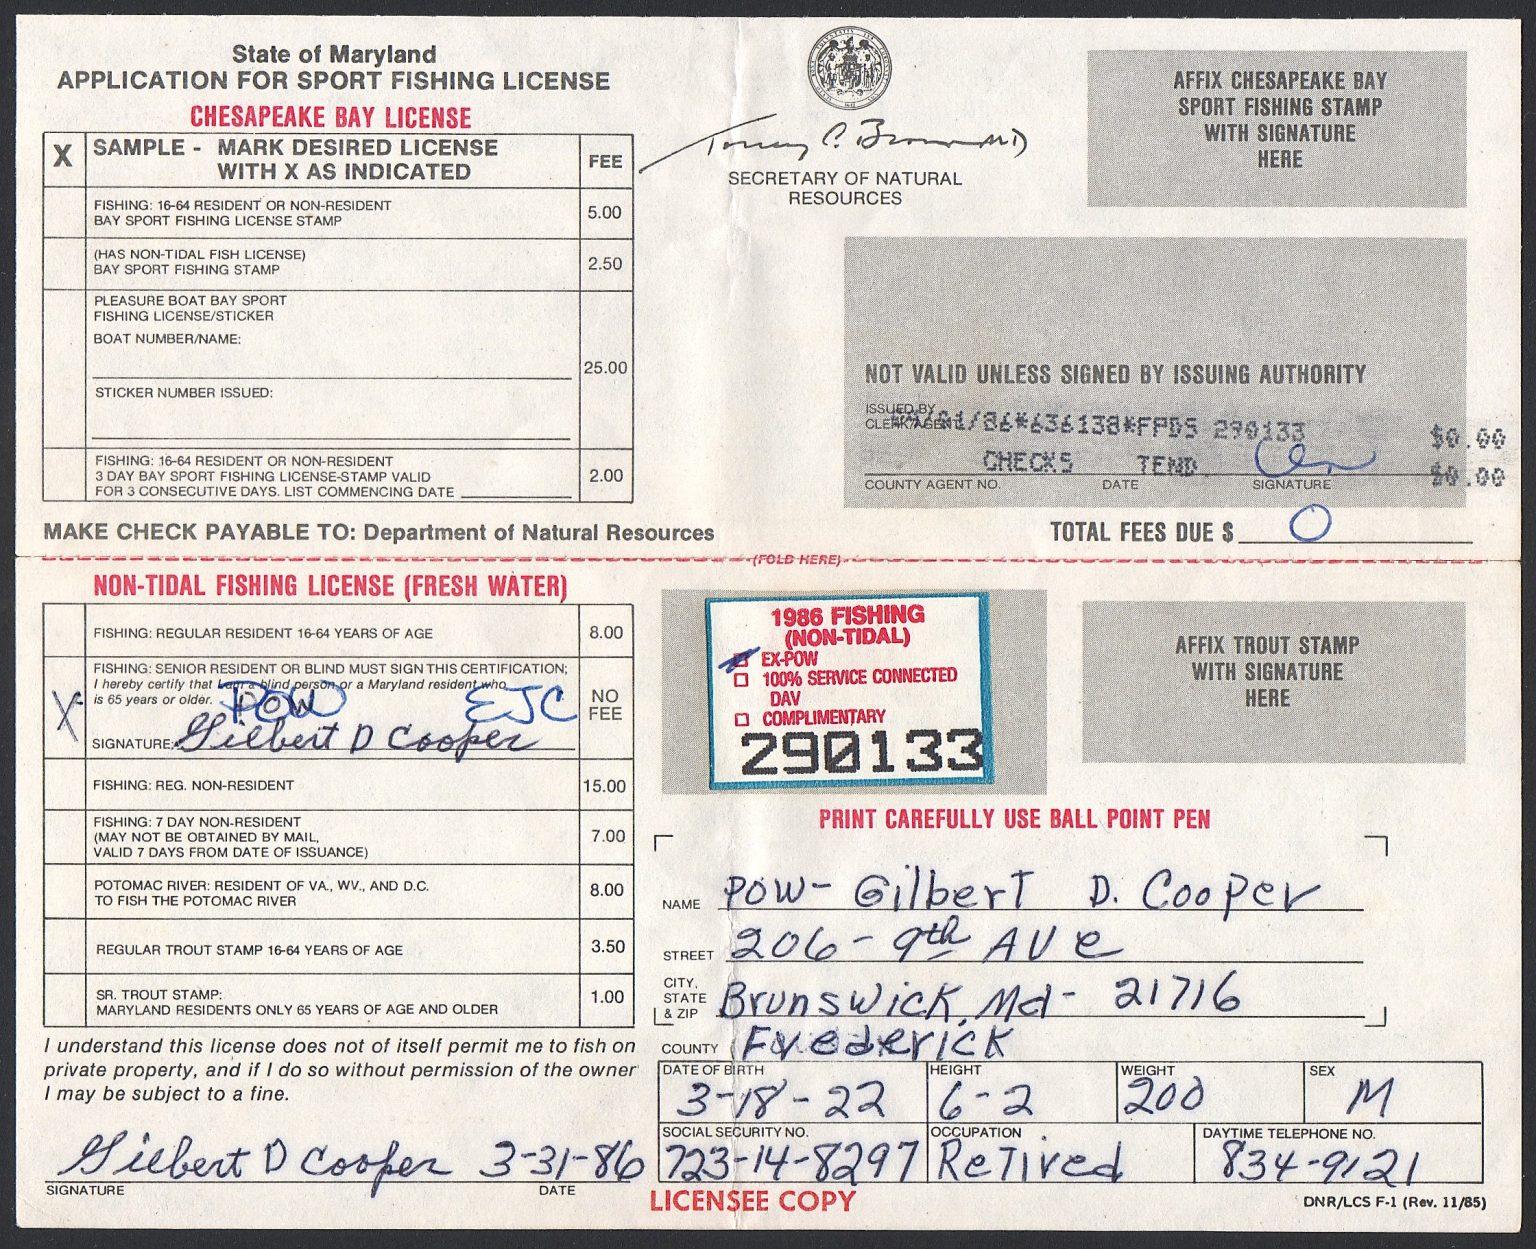 State of Maryland
APPLICATION FOR SPORT FISHING LICENSE
CHESAPEAKE BAY LICENSE
X SAMPLE - MARK DESIRED LICENSE
WITH X AS INDICATED
FEE
FISHING: 16-64 RESIDENT OR NON-RESIDENT
BAY SPORT FISHING LICENSE STAMP
5.00
(HAS NON-TIDAL FISH LICENSE)
BAY SPORT FISHING STAMP
2.50
PLEASURE BOAT BAY SPORT
FISHING LICENSE/STICKER
BOAT NUMBER/NAME:
25.00
STICKER NUMBER ISSUED:
FISHING: 16-64 RESIDENT OR NON-RESIDENT
3 DAY BAY SPORT FISHING LICENSE-STAMP VALID
FOR 3 CONSECUTIVE DAYS. LIST COMMENCING DATE
2.00
MAKE CHECK PAYABLE TO: Department of Natural Resources
SECRETARY OF NATURAL
RESOURCES
AFFIX CHESAPEAKE BAY
SPORT FISHING STAMP
WITH SIGNATURE
HERE
NOT VALID UNLESS SIGNED BY ISSUING AUTHORITY
ISSUED BY
CLERK/AGENT
/86*636138*FPDS 290133 $0.00
CHECKS TEND $0.00
COUNTY AGENT NO. DATE SIGNATURE
TOTAL FEES DUE $ 0
(FOLD HERE)
NON-TIDAL FISHING LICENSE (FRESH WATER)
FISHING: REGULAR RESIDENT 16-64 YEARS OF AGE
8.00
FISHING: SENIOR RESIDENT OR BLIND MUST SIGN THIS CERTIFICATION;
I hereby certify that I am a blind person or a Maryland resident who
is 65 years or older. POW EJC
X
NO
FEE
SIGNATURE: Gilbert D Cooper
FISHING: REG. NON-RESIDENT
15.00
FISHING: 7 DAY NON-RESIDENT
(MAY NOT BE OBTAINED BY MAIL,
VALID 7 DAYS FROM DATE OF ISSUANCE)
7.00
POTOMAC RIVER: RESIDENT OF VA., WV., AND D.C.
TO FISH THE POTOMAC RIVER
8.00
REGULAR TROUT STAMP 16-64 YEARS OF AGE
3.50
SR. TROUT STAMP:
MARYLAND RESIDENTS ONLY 65 YEARS OF AGE AND OLDER
1.00
I understand this license does not of itself permit me to fish on
private property, and if I do so without permission of the owner
I may be subject to a fine.
Gilbert D Cooper 3-31-86
SIGNATURE DATE
1986 FISHING
(NON-TIDAL)
EX-POW
100% SERVICE CONNECTED
DAV
COMPLIMENTARY
290133
AFFIX TROUT STAMP
WITH SIGNATURE
HERE
PRINT CAREFULLY USE BALL POINT PEN
NAME POW- Gilbert D. Cooper
STREET 206-9th AVe
CITY,
STATE
& ZIP
Brunswick, Md- 21716
COUNTY Frederick
DATE OF BIRTH HEIGHT WEIGHT SEX
3-18-22 6-2 200 M
SOCIAL SECURITY NO. OCCUPATION DAYTIME TELEPHONE NO.
723-14-8297 ReTired 834-9121
LICENSEE COPY
DNR/LCS F-1 (Rev. 11/85)